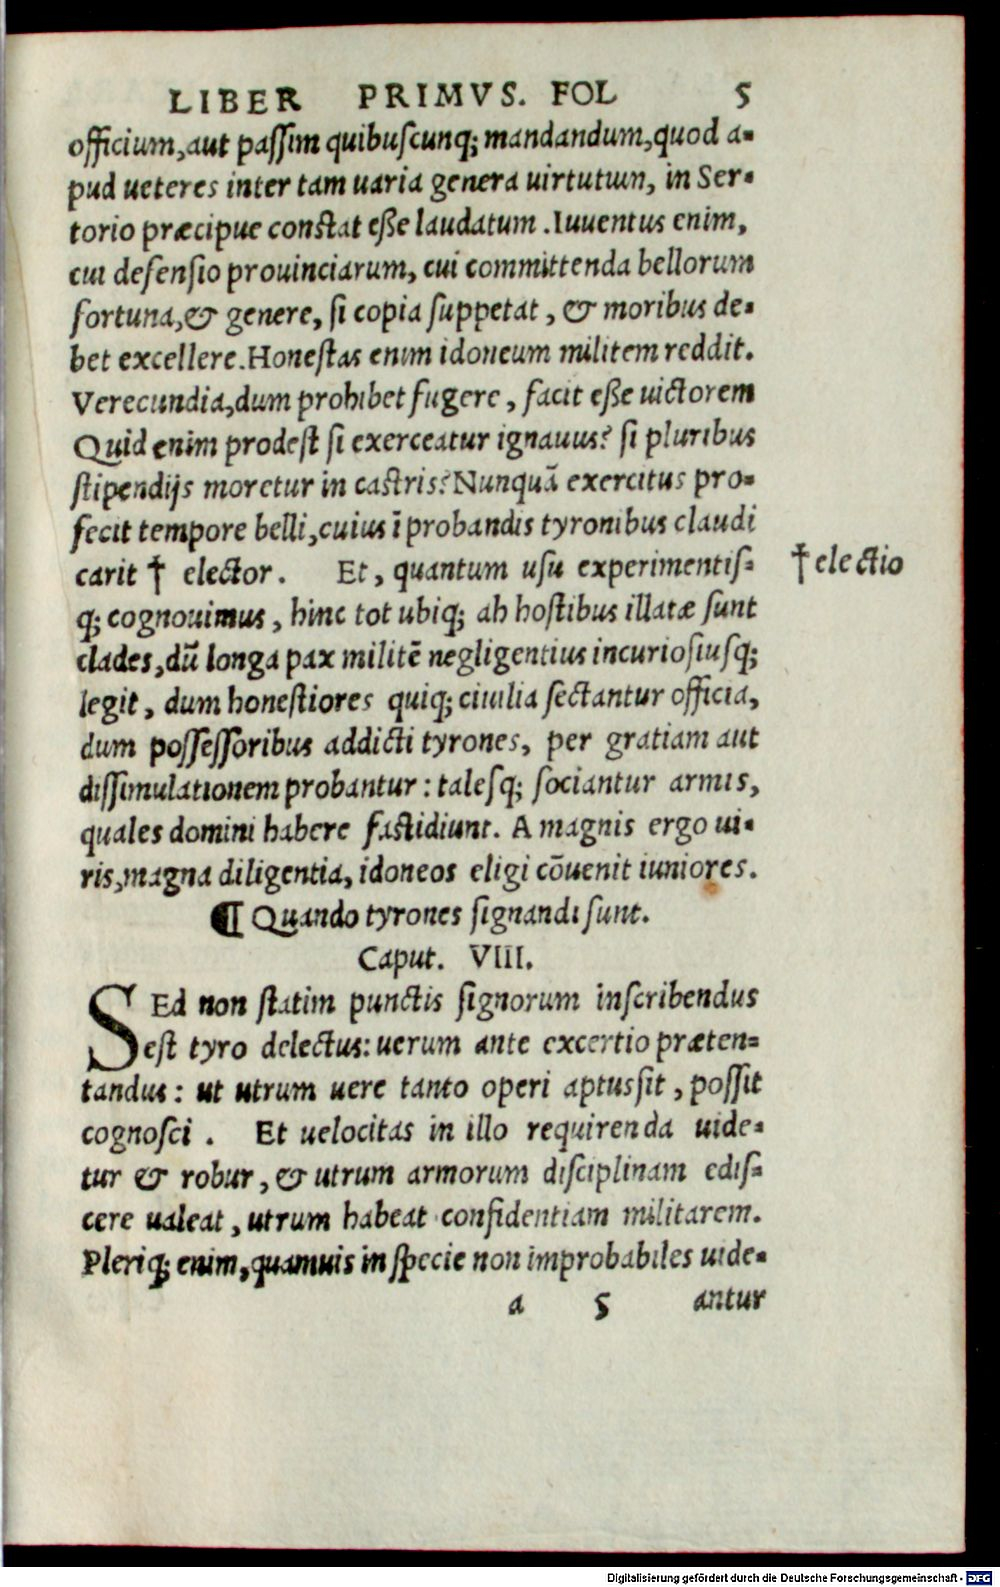 LIBER PRIMVS. FOL 5
officium, aut paſſim quibuſcunq; mandandum, quod a=
pud ueteres inter tam uaria genera uirtutum, in Ser=
torio præcipue conſtat eſſe laudatum. Iuuentus enim,
cui defenſio prouinciarum, cui committenda bellorum
fortuna, & genere, ſi copia ſuppetat, & moribus de=
bet excellere. Honeſtas enim idoneum militem reddit.
Verecundia, dum prohibet fugere, facit eſſe uictorem
Quid enim prodeſt ſi exerceatur ignauus? ſi pluribus
ſtipendijs moretur in caſtris? Nunquã exercitus pro=
fecit tempore belli, cuius ĩ probandis tyronibus claudi
carit † elector. Et, quantum uſu experimentiſ=
q; cognouimus, hinc tot ubiq; ab hoſtibus illatæ ſunt
clades, dũ longa pax militẽ negligentius incurioſiuſq;
legit, dum honeſtiores quiq; ciuilia ſectantur officia,
dum poſſeſſoribus addicti tyrones, per gratiam aut
diſſimulationem probantur: taleſq; ſociantur armis,
quales domini habere faſtidiunt. A magnis ergo ui=
ris, magna diligentia, idoneos eligi cõuenit iuniores.
† electio
¶ Quando tyrones ſignandi ſunt.
Caput. VIII.
SEd non ſtatim punctis ſignorum inſcribendus
eſt tyro delectus: uerum ante excertio præten=
tandus: ut utrum uere tanto operi aptus ſit, poſſit
cognoſci. Et uelocitas in illo requirenda uide=
tur & robur, & utrum armorum diſciplinam ediſ=
cere ualeat, utrum habeat confidentiam militarem.
Pleriq; enim, quamuis in ſpecie non improbabiles uide=
a 5 antur
Digitalisierung gefördert durch die Deutsche Forschungsgemeinschaft - DFG